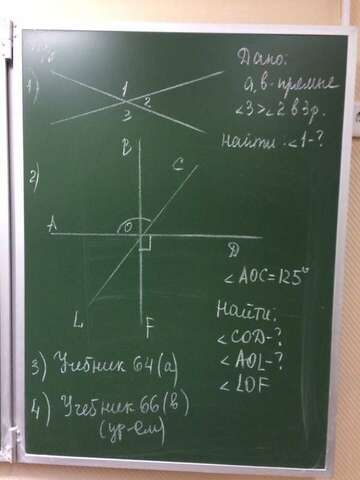 1)
1
2
3
Дано:
a, b - прямые
<3 > <2 в 3 р.
Найти <1 - ?
2)
B
C
A
O
D
L
F
<AOC = 125°
Найти:
<COD - ?
<AOL - ?
<LOF
3) Учебник 64 (а)
4) Учебник 66 (в)
(ур-ем)